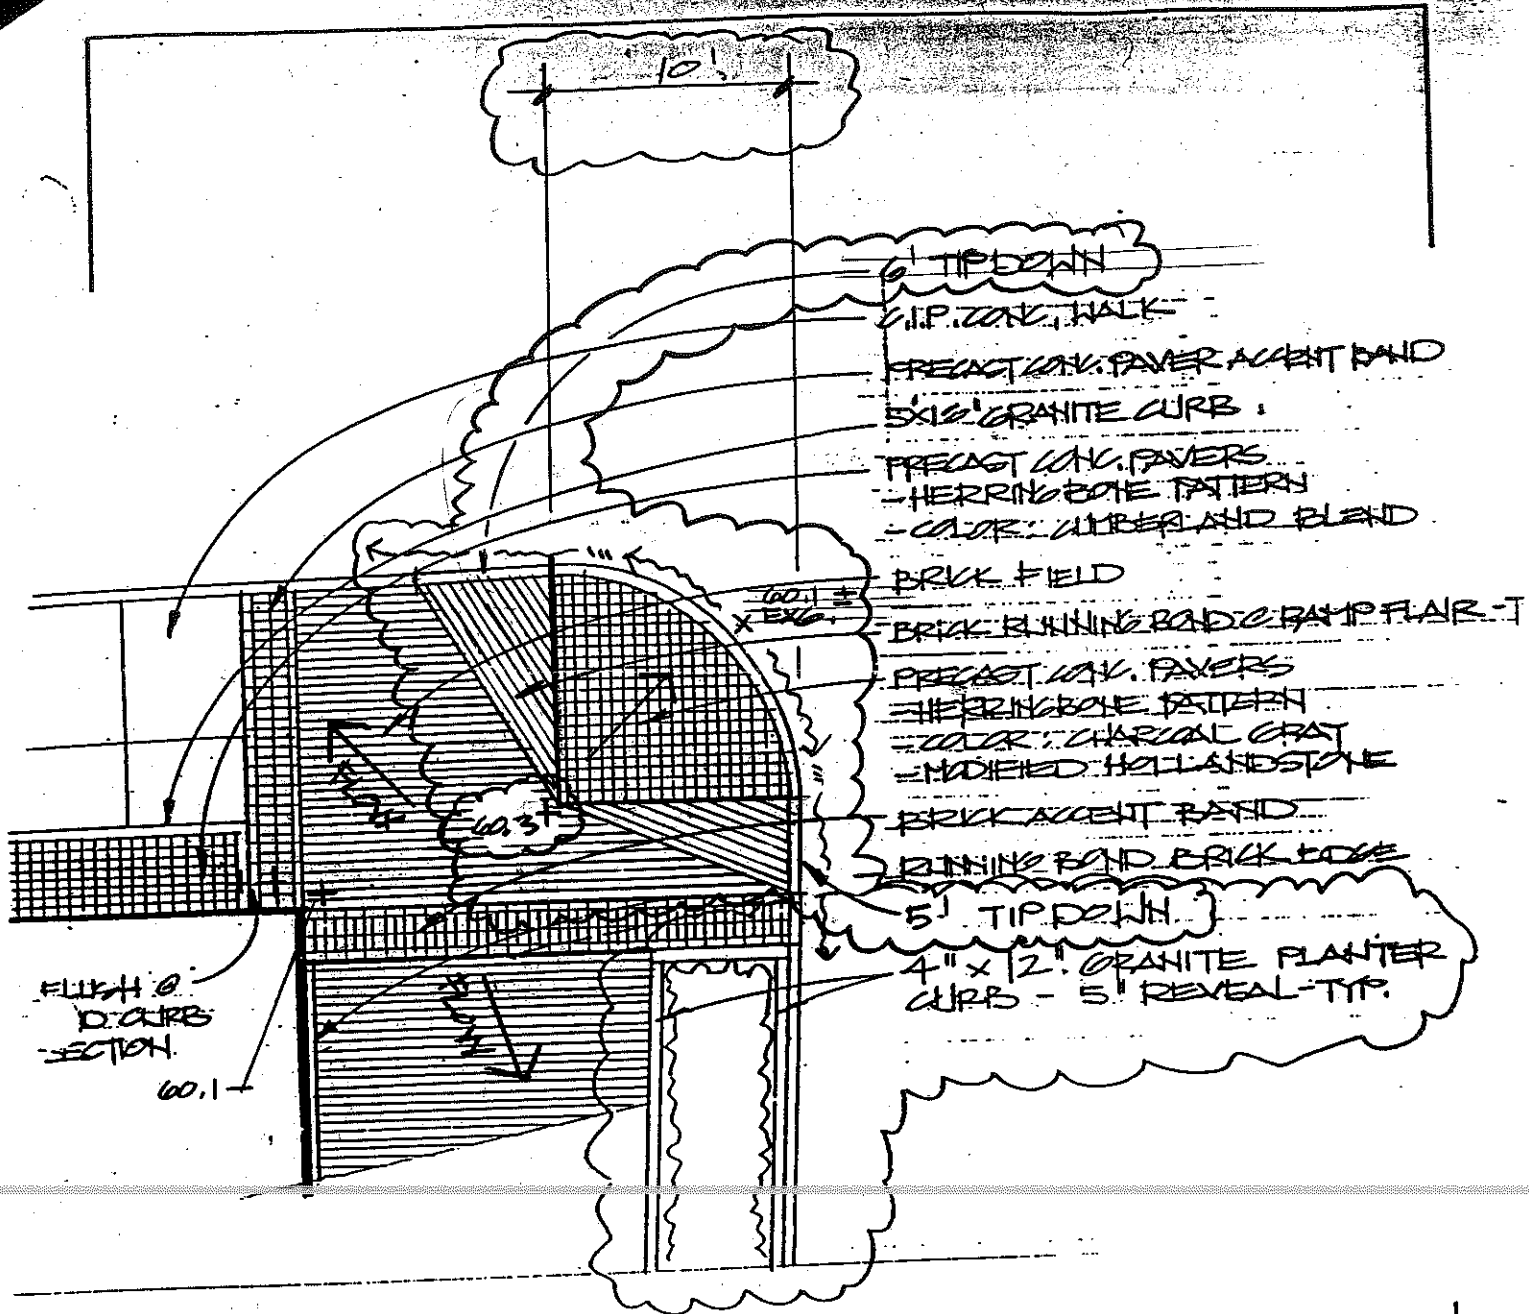 10'
6' TIPDOWN
C.I.P. CONC. WALK
PRECAST CONC. PAVER ACCENT BAND
5X16" GRANITE CURB
PRECAST CONC. PAVERS
-HERRINGBONE PATTERN
-COLOR: CUMBERLAND BLEND
BRICK FIELD
60.1 ±
EXG.
BRICK RUNNING BOND @ RAMP FLAIR -T
PRECAST CONC. PAVERS
-HERRINGBONE PATTERN
-COLOR: CHARCOAL GRAY
-MODIFIED HOLLANDSTONE
BRICK ACCENT BAND
60.3+
RUNNING BOND BRICK EDGE
5' TIPDOWN
4" X 12" GRANITE PLANTER
CURB - 5" REVEAL-TYP.
FLUSH @
CURB
SECTION
60.1